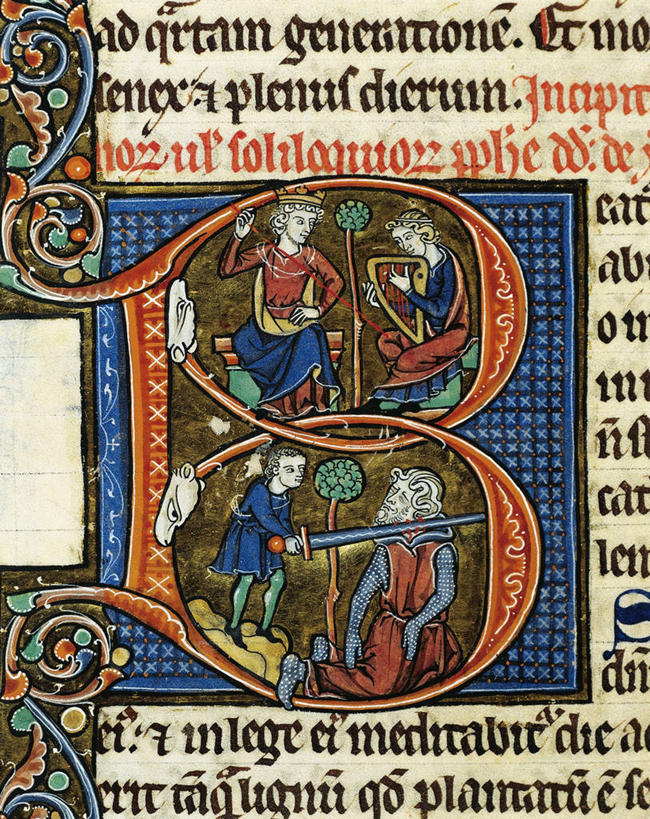 ad qrtam generationē. Et mo
senex ⁊ plenus dierum. Incipit
noꝝ ul soliloquioꝝ pphe dd: de
B eat
abi
o in
cat
len
S
dn̄i
ei⁹: ⁊ in lege ei⁹ meditabit᷑ die ac
erit tāq̄ lignū qđ plantatū ē se